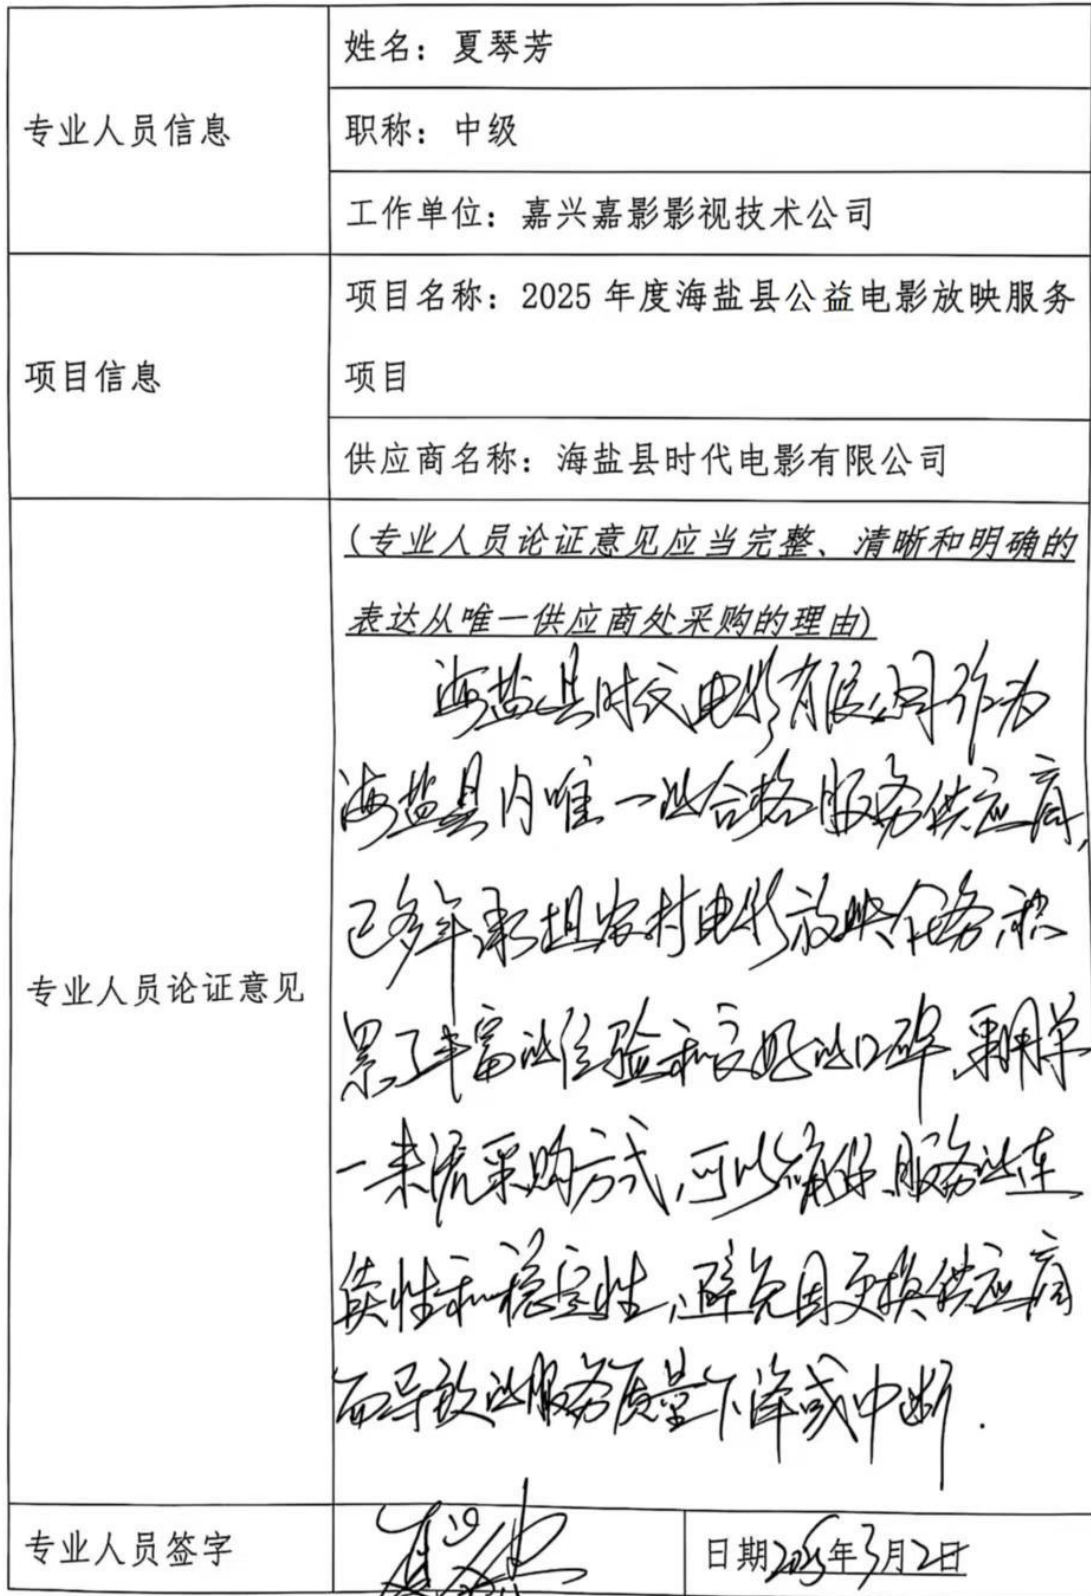 专业人员信息
姓名：夏琴芳
职称：中级
工作单位：嘉兴嘉影影视技术公司
项目信息
项目名称：2025 年度海盐县公益电影放映服务
项目
供应商名称：海盐县时代电影有限公司
专业人员论证意见
(专业人员论证意见应当完整、清晰和明确的
表达从唯一供应商处采购的理由)
海盐县时代电影有限公司作为
海盐县内唯一的合格服务供应商，
已多年承担农村电影放映任务，积
累了丰富的经验和良好的口碑，采用单
一来源采购方式，可以确保服务的连
续性和稳定性，避免因更换供应商
而导致的服务质量下降或中断.
专业人员签字
夏琴芳
日期2025年3月2日